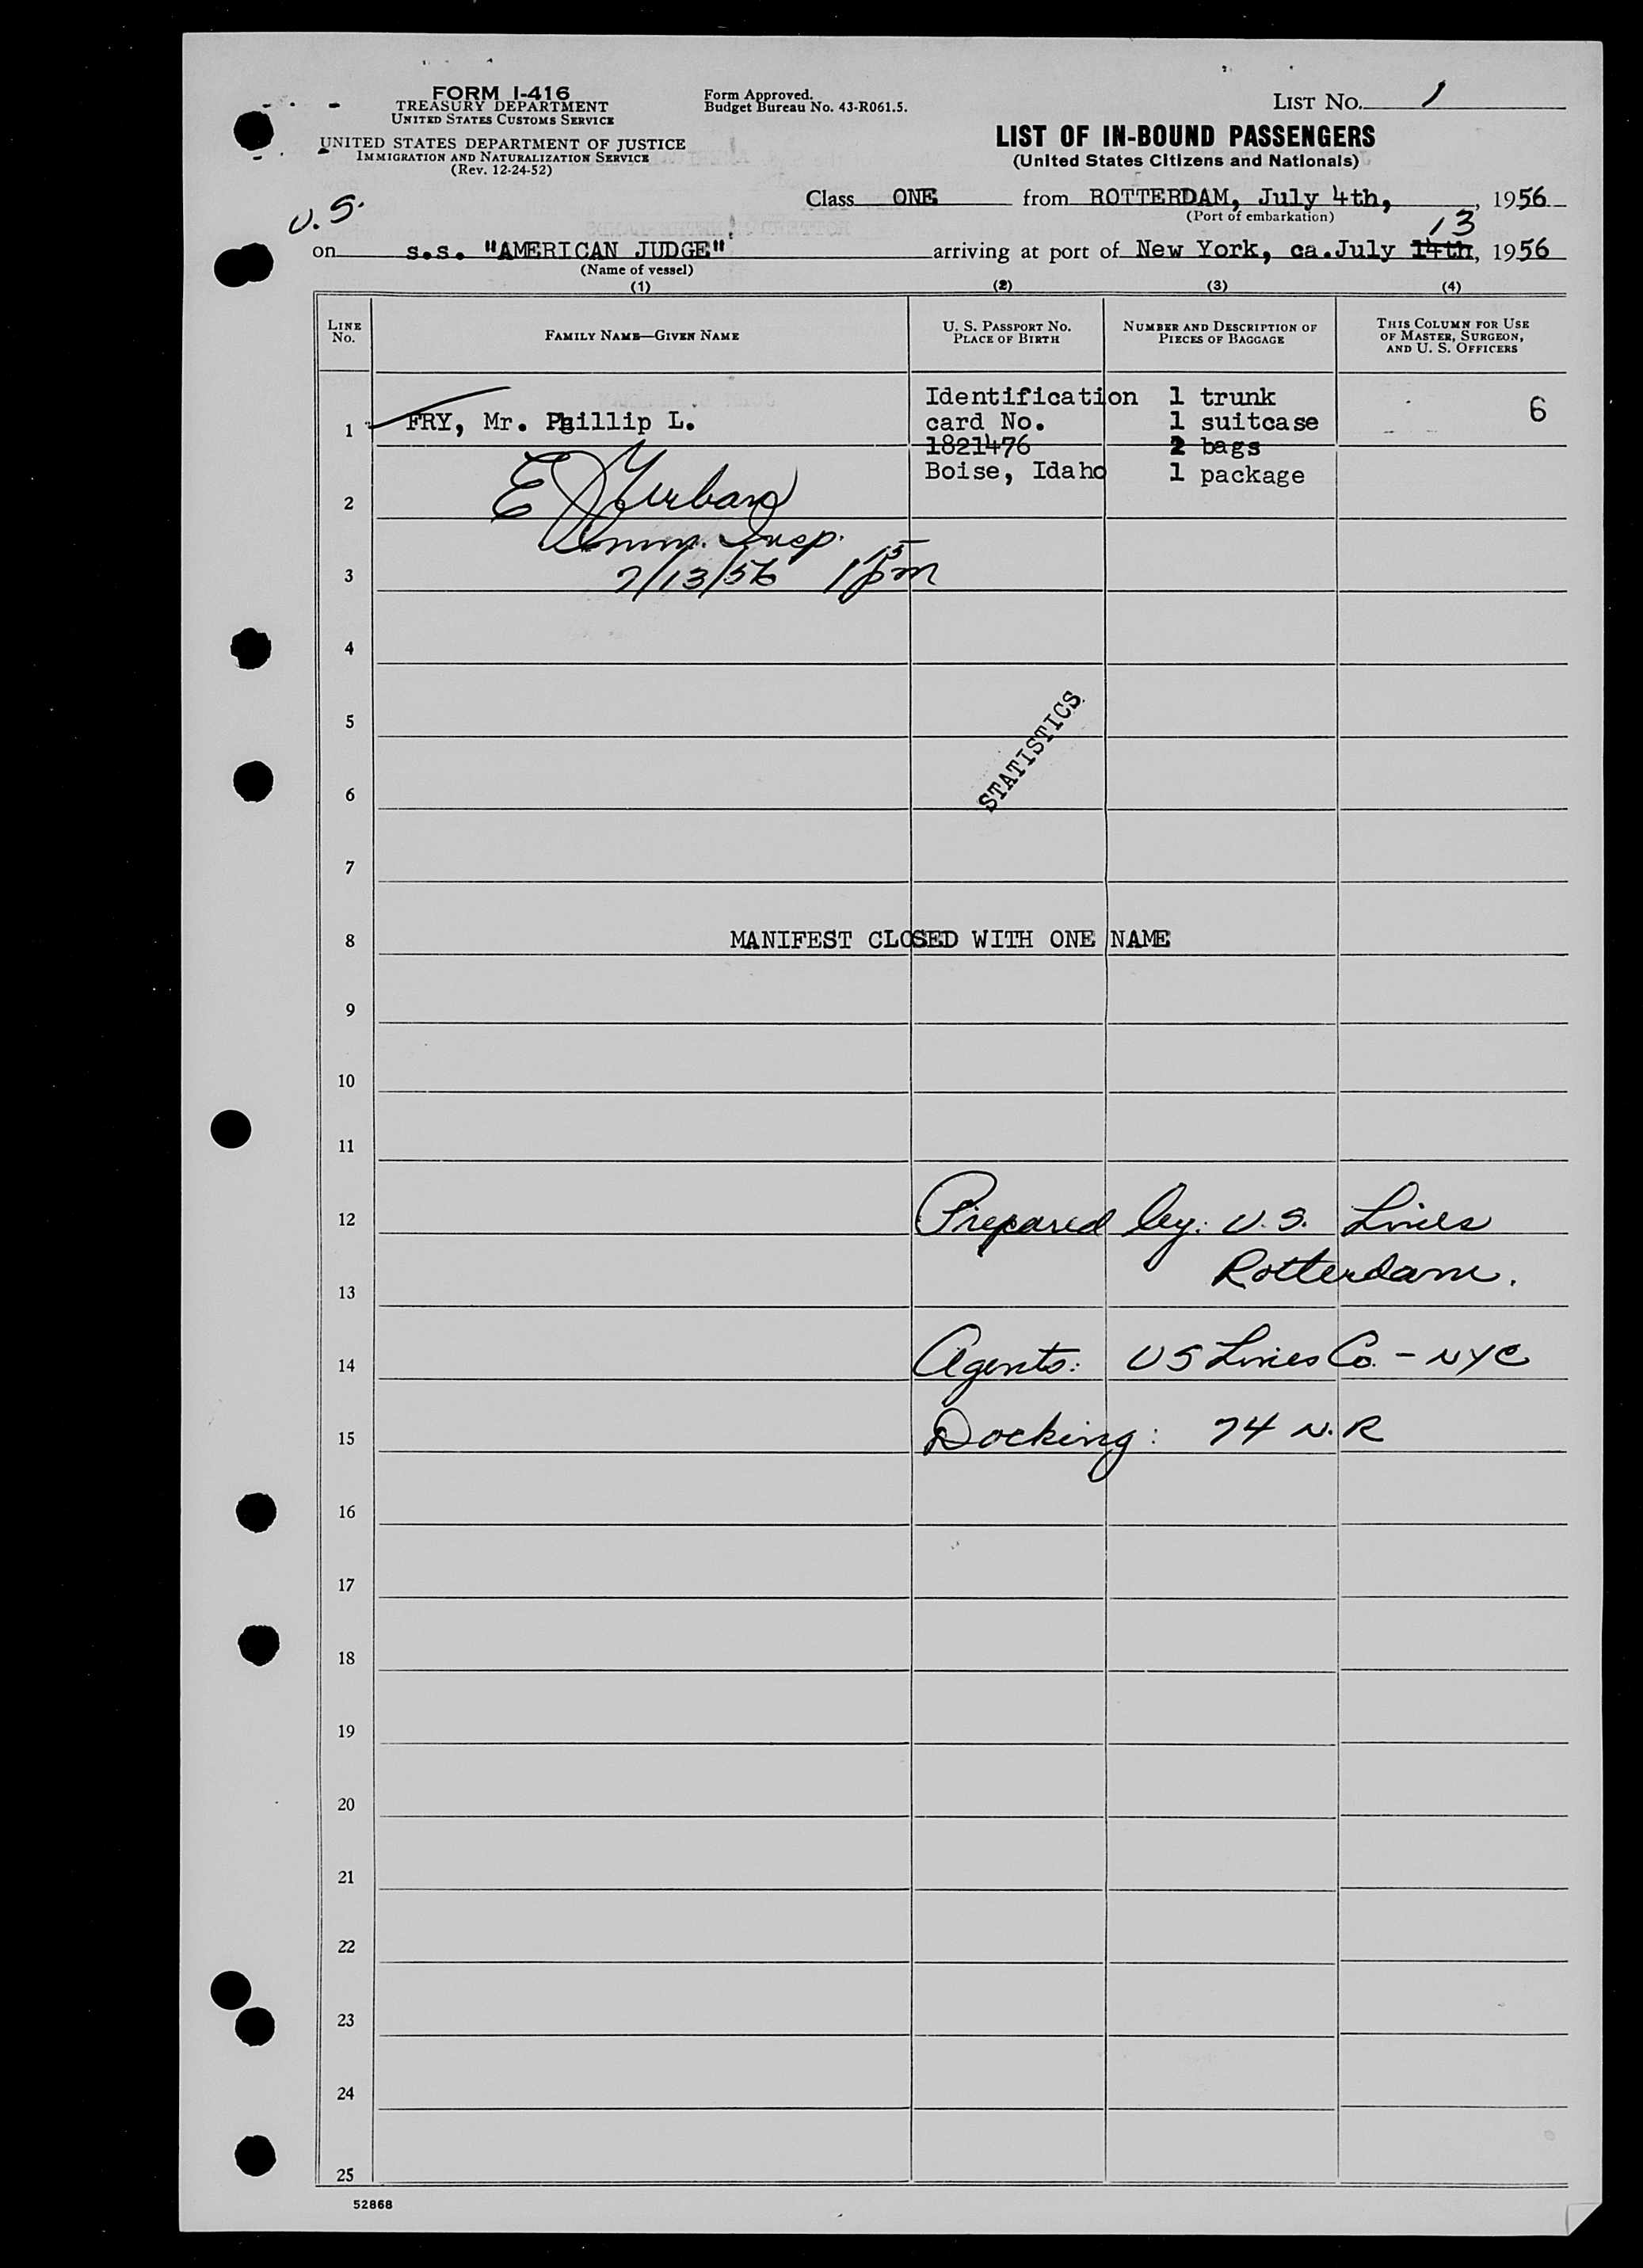 FORM I-416
TREASURY DEPARTMENT
UNITED STATES CUSTOMS SERVICE
UNITED STATES DEPARTMENT OF JUSTICE
IMMIGRATION AND NATURALIZATION SERVICE
(Rev. 12-24-52)
Form Approved.
Budget Bureau No. 43-R061.5.
LIST NO. 1
LIST OF IN-BOUND PASSENGERS
(United States Citizens and Nationals)
Class ONE from ROTTERDAM, July 4th, , 1956
(Port of embarkation)
U.S.
13
on s.s. "AMERICAN JUDGE" arriving at port of New York, ca. July 14th, 1956
(Name of vessel)
(1) (2) (3) (4)
LINE NO. FAMILY NAME—GIVEN NAME U. S. PASSPORT NO. PLACE OF BIRTH NUMBER AND DESCRIPTION OF PIECES OF BAGGAGE THIS COLUMN FOR USE OF MASTER, SURGEON, AND U. S. OFFICERS
Identification 1 trunk
1 FRY, Mr. Phillip L. card No. 1 suitcase 6
1821476 2 bags
Boise, Idaho 1 package
2
Imm. Insp.
3 7/13/56 1 15 pm
4
5
STATISTICS
6
7
8 MANIFEST CLOSED WITH ONE NAME
9
10
11
12 Prepared by: U.S. Lines
Rotterdam.
13
14 Agents: US Lines Co. - NYC
15 Docking: 74 N.R
16
17
18
19
20
21
22
23
24
25
52868